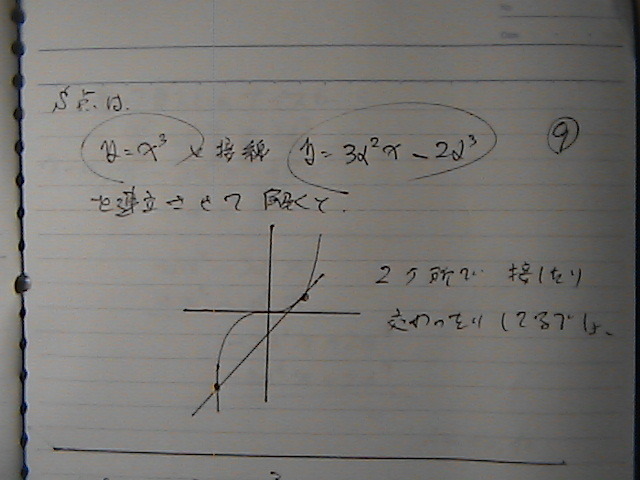 S点は.
y=x³ と接線 y=3α²x-2α³
⑨
を連立させて解くと.
2ヶ所で接したり
交わったりしてるでしょ、